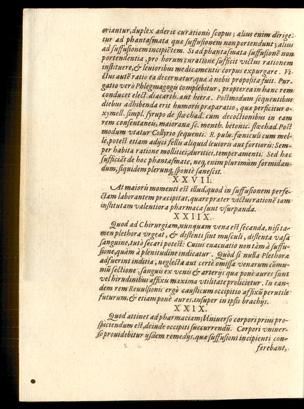 oriantur, duplex aderit curationis scopus; alius enim dirige-
tur ad phantasmata quæ suffusionem non portendunt; alius
ad suffusionem incipiẽtem. Si ad phantasmata suffusionẽ non
portendentia, pro horum curatione sufficit victus rationem
instituere, & leuioribus medicamentis corpus expurgare. Vi-
ctus autẽ ratio ea decernatur, quæ à nobis proposita fuit. Pur-
gatio verò Phlegmagogis complebitur, propterea in hanc rem
conducet elect. diacarth. aut hiera. Postmodum sequentibus
diebus adhibenda erit humoris præparatio, quæ perficitur o-
xymell. simpl. syrupo de stœchad. cum decoctionibus in eam
rem consentaneis, maiorana sc. menth. betonic. stœchad. Post
modum vtatur Collyrio sequenti: R. pulu. fœniculi cum mel-
le, potest etiam adijci fellis aliquid leuioris aut fortioris: Sem-
per habita ratione mollitiei, duritiei, temperamenti. Sed hæc
sufficiẽt de hoc phantasmate, neq; enim plurimùm formidan-
dum, siquidem plerunq; sponte sanescit.
XXVII.
At maioris momenti est illud, quod in suffusionem perfe-
ctam laborantem præcipitat, quare præter victus rationẽ tam
institutam valentiora pharmaca sunt vsurpanda.
XXIIX.
Quod ad Chirurgiam, nunquam vena est secanda, nisi ta-
men plethora vrgeat, & distenti sint musculi, distenta vasa
sanguine, tutò secari potest: Cuius euacuatio non tàm à suffu-
sione, quàm à plenitudine indicatur. Quòd si nulla Plethora
adfuerint indicia, neglectâ aut certè omissâ venarum cõmu-
niũ sectione, sanguis ex venis & arterijs quæ ponè aures sunt
vel hirudinibus affixis maxima vtilitate prolicietur. In eun-
dem rem Reuulsionis ergò causticum occipitio affixũ perutile
futurum, & etiam ponè aures, insuper in ipsis brachijs.
XXIX.
Quod attinet ad pharmaciam; Vniuerso corpori primò pro-
spiciendum est, deinde occipiti succurrendũ. Corpori vniuer-
so prouidebitur ijsdem remedijs, quæ suffusioni incipienti con-
ferebant,